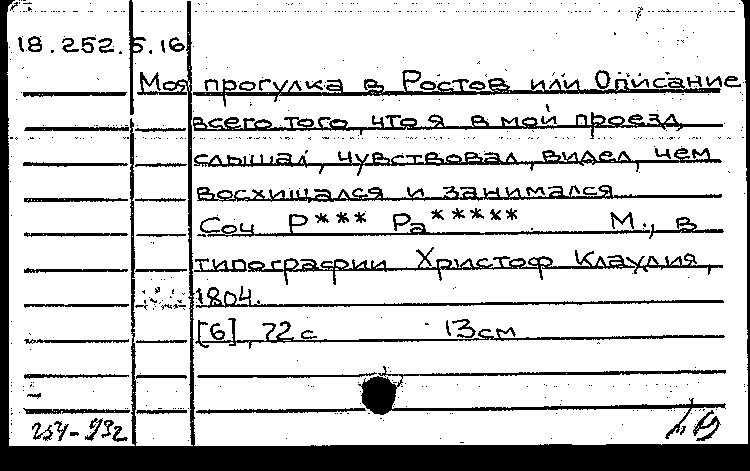 18.252.5.16
Моя прогулка в Ростов или Описание
всего того, что я в мой проезд
слышал, чувствовал, видел, чем
восхищался и занимался
Соч Р*** Ра***** М., в
типографии Христоф Клаудия,
1804.
[6], 72 с 13 см
254-932